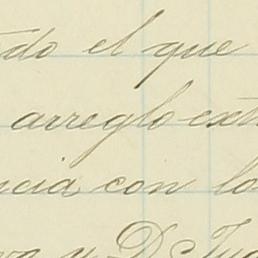 do el que
arreglo ext
ncia con lo
y D. Jua